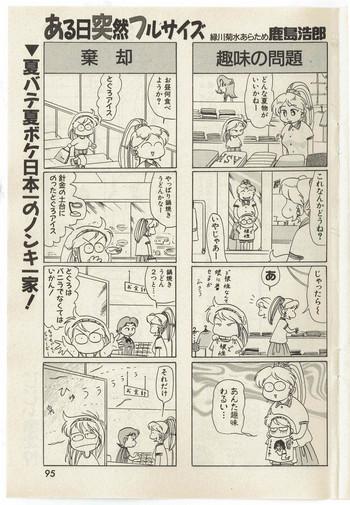 ある日突然フルサイズ
緑川菊水あらため鹿島浩郎
▼夏バテ夏ボケ日本一のノンキ一家!
趣味の問題
どんな夏物が
いいかねー
これなんかどうね?
いやじゃあー
じゃったら〜
あ
あんた趣味
わるい…
棄却
お昼何食べ
ようか?
とぐろアイス
やっぱり鍋焼き
うどんかな!
針金の土台に
のったとぐろアイス
鍋焼き
うどん
2つとー
とぐろは
バニラでなくては
いかん!
お会計
それだけ
お会計
ひゅうう
95